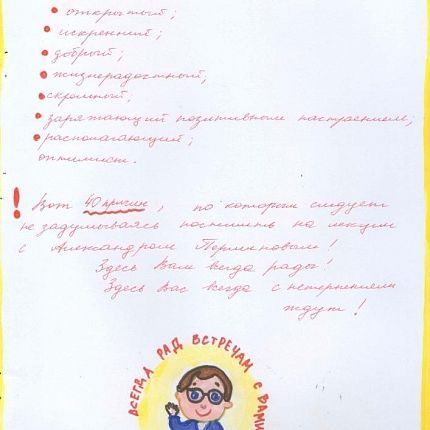 • открытый;
• искренний;
• добрый;
• жизнерадостный;
• скромный;
• заряжающий позитивным настроением;
• располагающий;
оптимист.
! Вот 40 причин, по которым следует
не задумываясь поспешить на лекции
с Александром Перликовым!
Здесь Вам всегда рады!
Здесь Вас всегда с нетерпением
ждут!
ВСЕГДА РАД ВСТРЕЧАМ С ВАМИ